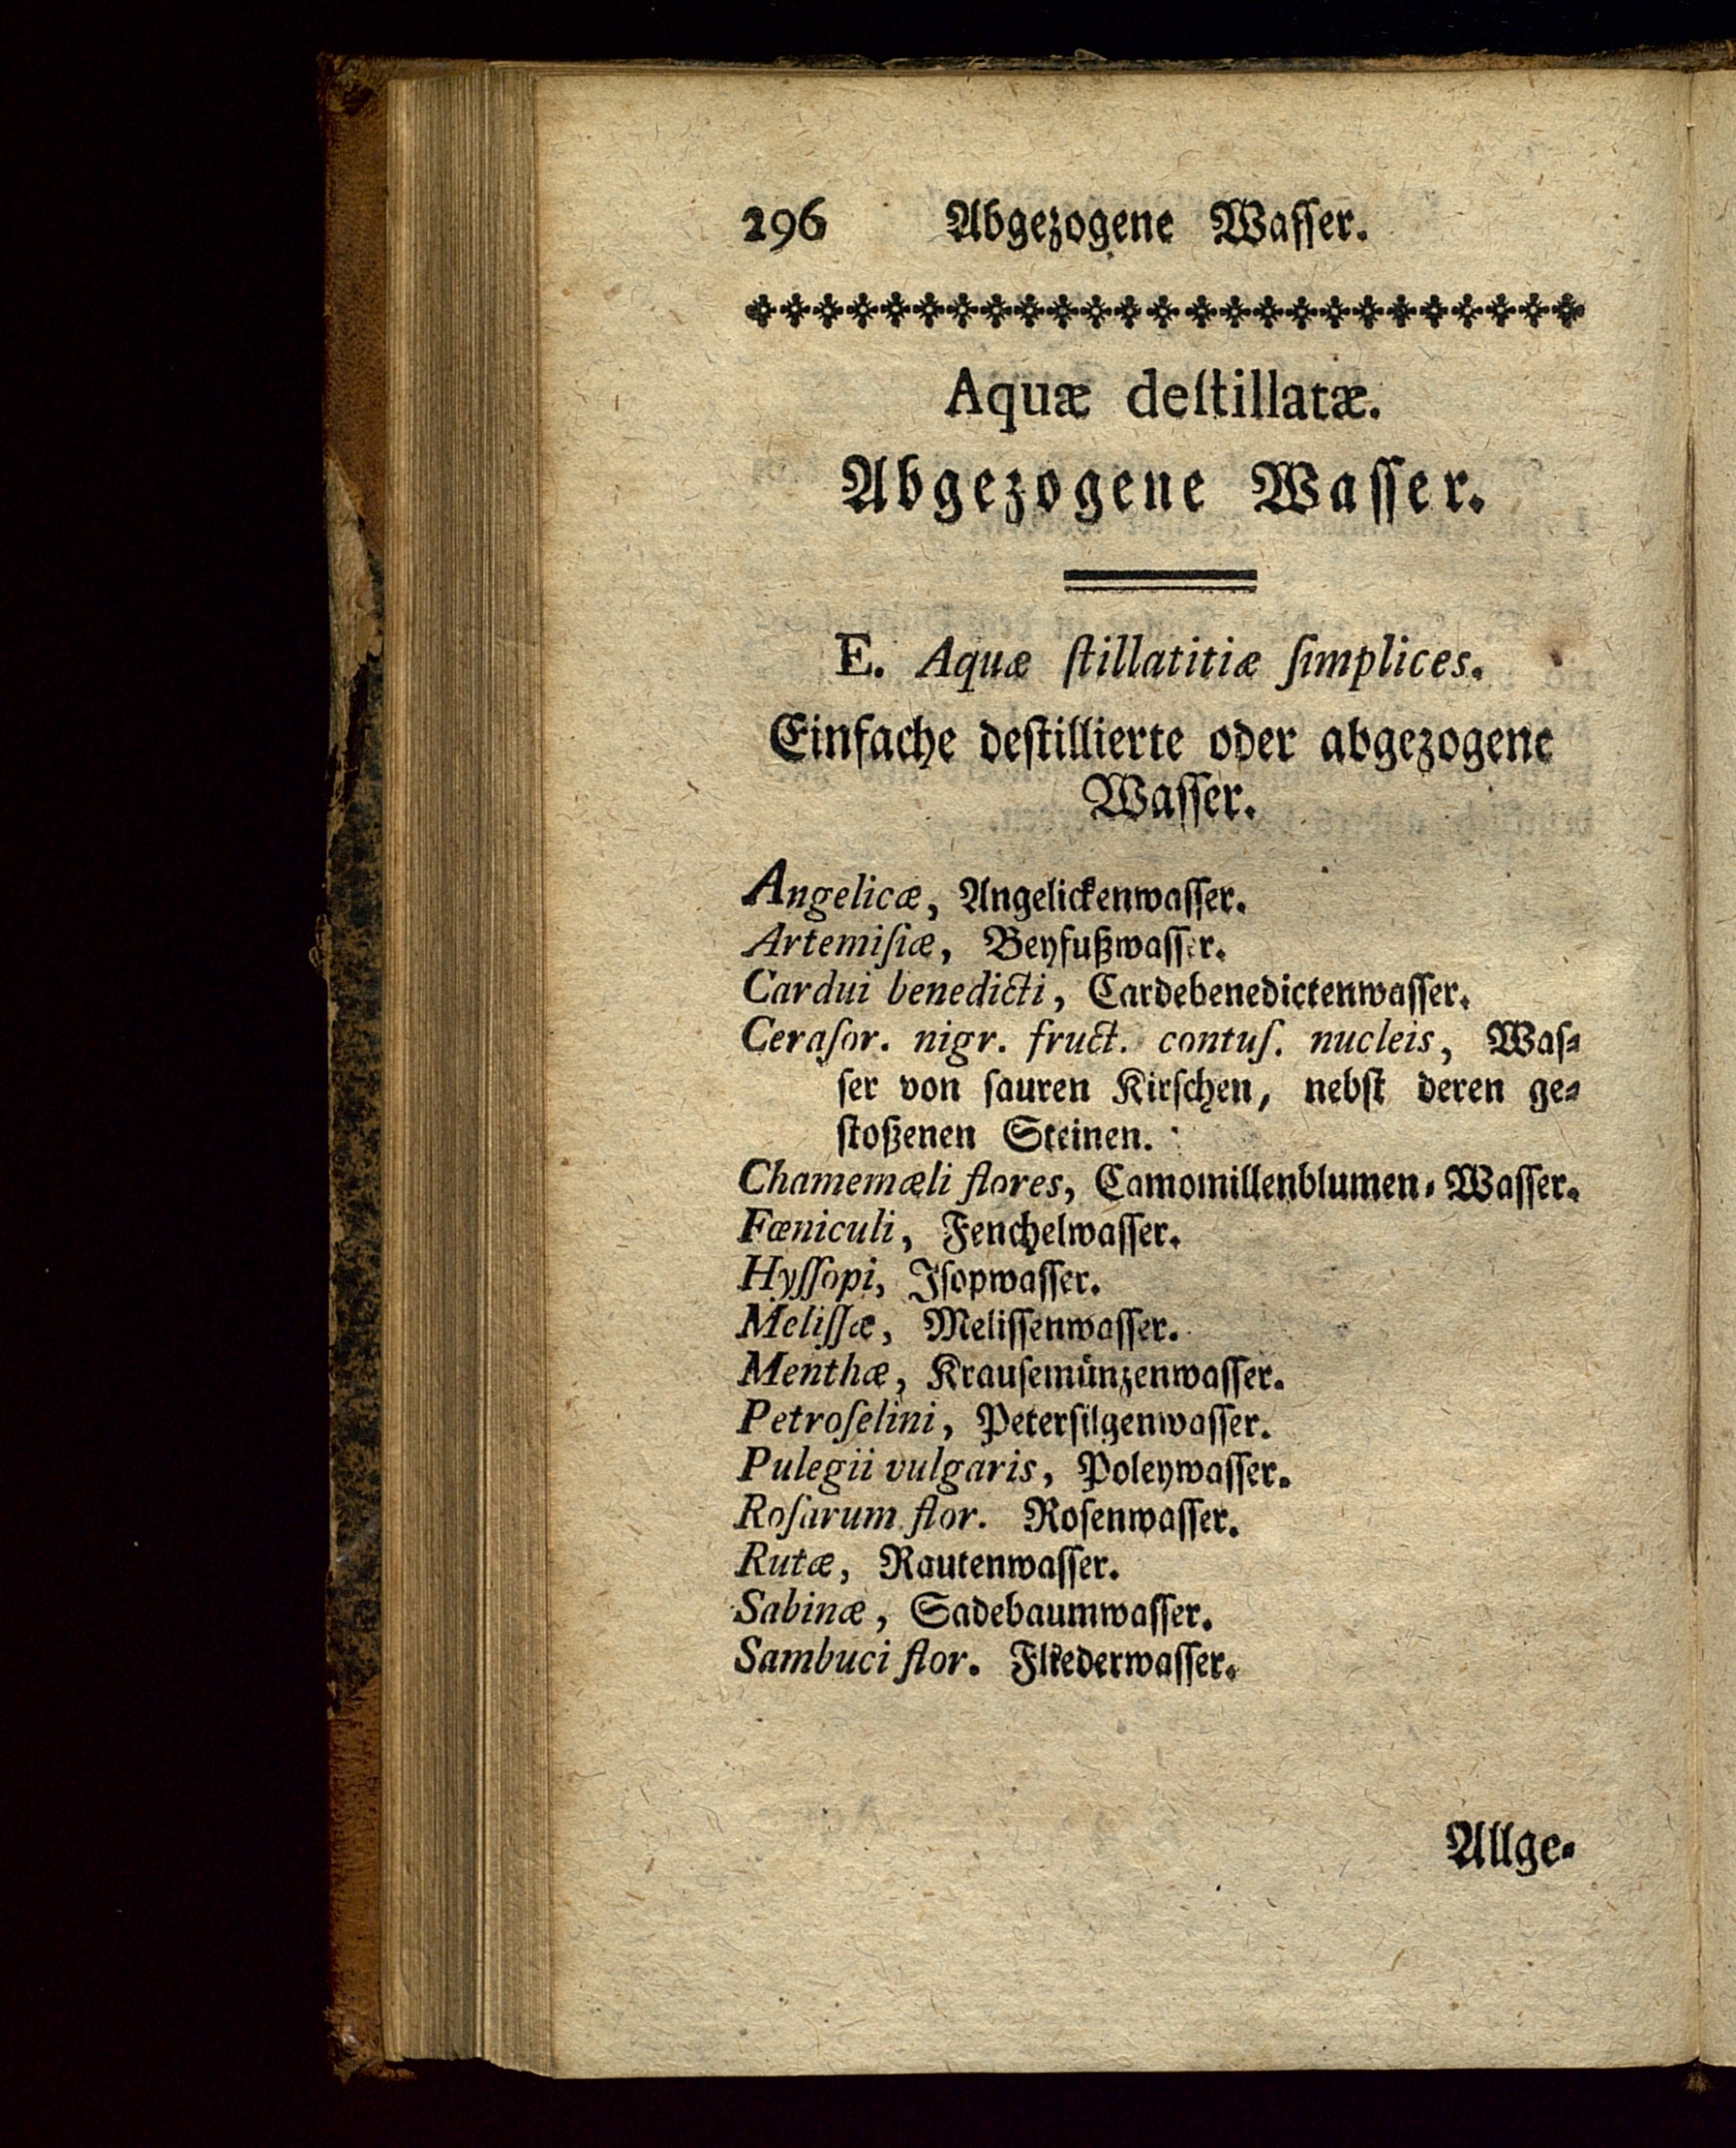 296 Abgezogene Waſſer.
Aquæ deſtillatæ.
Abgezogene Waſſer.
E. Aquæ ſtillatitiæ ſimplices.
Einfache deſtillierte oder abgezogene
Waſſer.
Angelicæ, Angelickenwaſſer.
Artemiſiæ, Beyfußwaſſer.
Cardui benedicti, Cardebenedictenwaſſer.
Ceraſor. nigr. fruct. contuſ. nucleis, Waſ⸗
ſer von ſauren Kirſchen, nebſt deren ge⸗
ſtoßenen Steinen.
Chamemæli flores, Camomillenblumen⸗Waſſer.
Fœniculi, Fenchelwaſſer.
Hyſſopi, Iſopwaſſer.
Meliſſæ, Meliſſenwaſſer.
Menthæ, Krauſemünzenwaſſer.
Petroſelini, Peterſilgenwaſſer.
Pulegii vulgaris, Poleywaſſer.
Roſarum flor. Roſenwaſſer.
Rutæ, Rautenwaſſer.
Sabinæ, Sadebaumwaſſer.
Sambuci flor. Fliederwaſſer.
Allge⸗